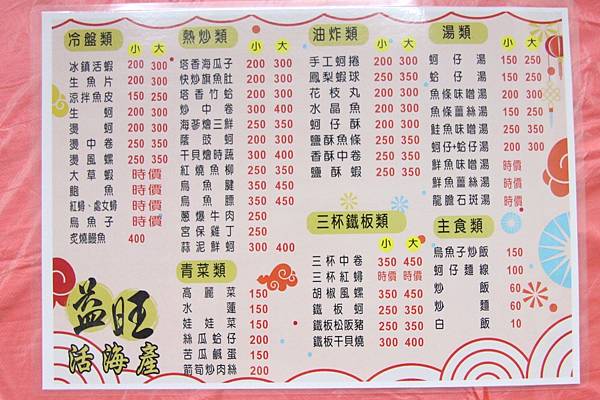 冷盤類 小 大
冰鎮活蝦 200 300
生魚片 200 300
涼拌魚皮 150 250
生蚵 200 300
燙蚵 200 300
燙中卷 250 350
燙風螺 250 350
大草蝦 時價
鮑魚 時價
紅蟳、處女蟳 時價
烏魚子 時價
炙燒鰻魚 400
益旺
活海產
熱炒類 小 大
塔香海瓜子 200 300
快炒旗魚肚 200 300
塔香竹蛤 200 300
炒中卷 300 400
海蔘燴三鮮 250 350
蔭豉蚵 200 300
干貝燴時蔬 300 400
紅燒魚柳 250 350
烏魚腱 350 450
烏魚膘 350 450
蔥爆牛肉 250
宮保雞丁 250
蒜泥鮮蚵 300 400
青菜類
高麗菜 150
水蓮 150
娃娃菜 150
絲瓜蛤仔 200
苦瓜鹹蛋 150
箭筍炒肉絲 200
油炸類 小 大
手工蚵捲 200 300
鳳梨蝦球 250 350
花枝丸 200 300
水晶魚 200 300
蚵仔酥 200 300
鹽酥魚條 250 350
香酥中卷 250 350
鹽酥蝦 250 350
三杯鐵板類
小 大
三杯中卷 350 450
三杯紅蟳 時價 時價
胡椒風螺 350 450
鐵板蚵 250 350
鐵板松阪豬 250 350
鐵板干貝燒 300 400
湯類 小 大
蚵仔湯 150 250
蛤仔湯 150 250
魚條味噌湯 200 300
魚條薑絲湯 200 300
鮭魚味噌湯 250 350
蚵仔+蛤仔湯 200 300
鮮魚味噌湯 時價
鮮魚薑絲湯 時價
龍膽石斑湯 時價
主食類
烏魚子炒飯 150
蚵仔麵線 100
炒飯 60
炒麵 60
白飯 10